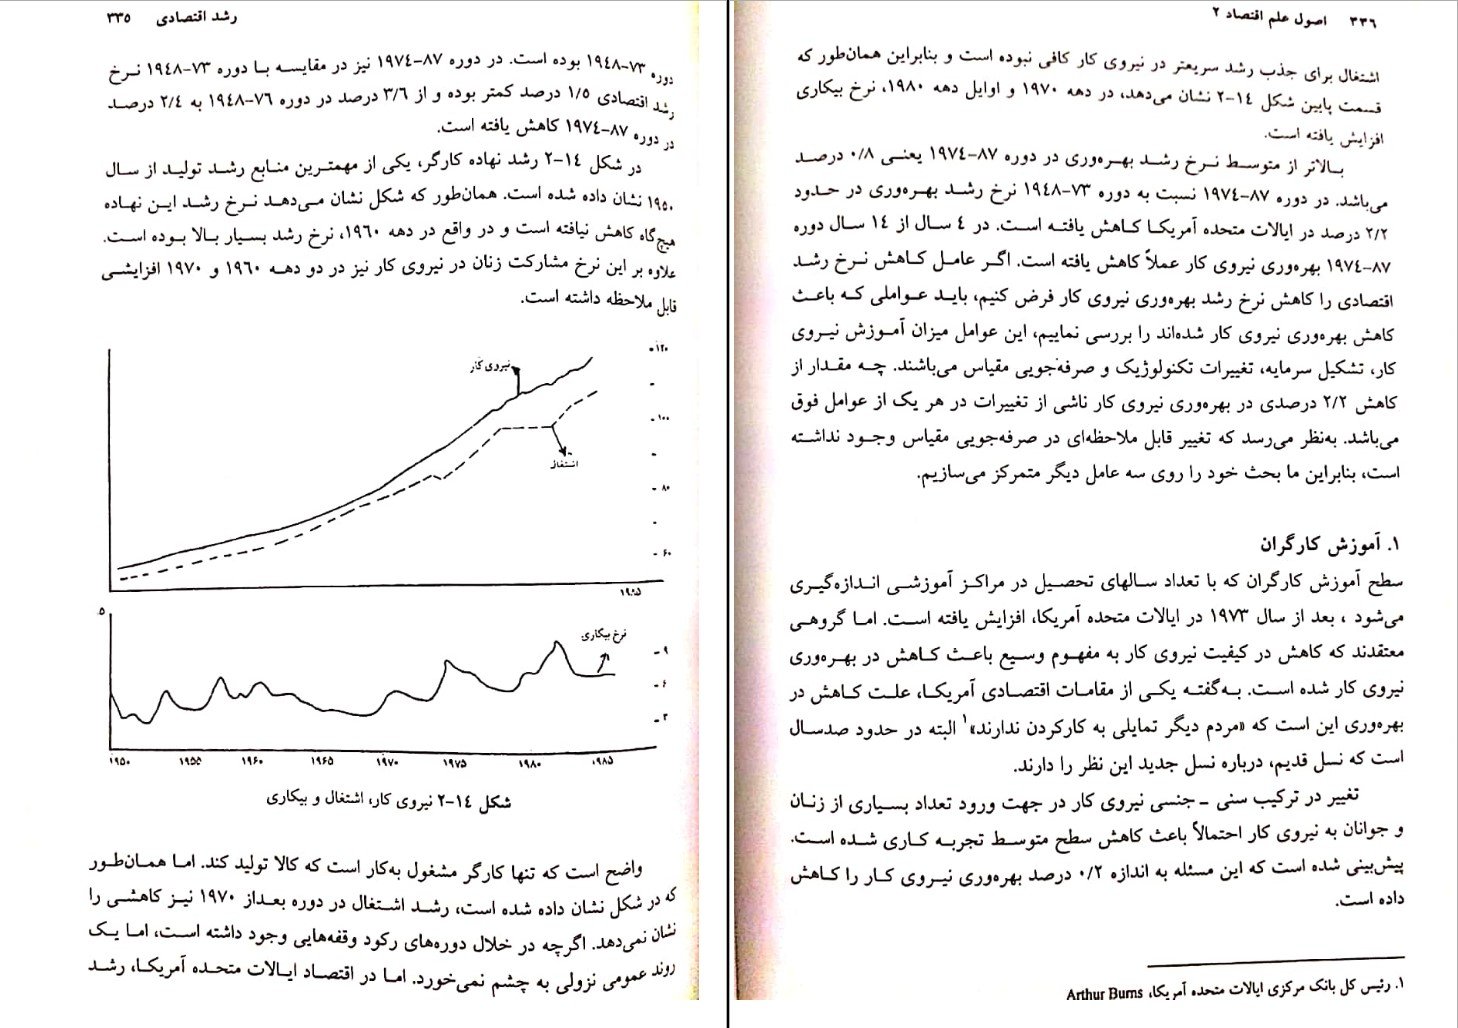 رشد اقتصادی ۳۳۵
دوره ۷۳–۱۹٤۸ بوده است. در دوره ۸۷–۱۹۷٤ نیز در مقایسه با دوره ۷۳–۱۹٤۸ نرخ
رشد اقتصادی ۱/۵ درصد کمتر بوده و از ۳/۶ درصد در دوره ۷۶–۱۹٤۸ به ۲/٤ درصد
در دوره ۸۷–۱۹۷٤ کاهش یافته است.
در شکل ۱٤–۲ رشد نهاده کارگر، یکی از مهمترین منابع رشد تولید از سال
۱۹۵۰ نشان داده شده است. همان‌طور که شکل نشان می‌دهد نرخ رشد این نهاده
هیچ‌گاه کاهش نیافته است و در واقع در دهه ۱۹۶۰، نرخ رشد بسیار بالا بوده است.
علاوه بر این نرخ مشارکت زنان در نیروی کار نیز در دو دهه ۱۹۶۰ و ۱۹۷۰ افزایشی
قابل ملاحظه داشته است.
۱۲۰
نیروی کار
۱۰۰
اشتغال
۸۰
۶۰
۱۹۸۵
۵
نرخ بیکاری
۹
۶
۳
۱۹۵۰ ۱۹۵۵ ۱۹۶۰ ۱۹۶۵ ۱۹۷۰ ۱۹۷۵ ۱۹۸۰ ۱۹۸۵
شکل ۱٤–۲ نیروی کار، اشتغال و بیکاری
واضح است که تنها کارگر مشغول به‌کار است که کالا تولید کند. اما همان‌طور
که در شکل نشان داده شده است، رشد اشتغال در دوره بعداز ۱۹۷۰ نیز کاهشی را
نشان نمی‌دهد. اگرچه در خلال دوره‌های رکود وقفه‌هایی وجود داشته است، اما یک
روند عمومی نزولی به چشم نمی‌خورد. اما در اقتصاد ایالات متحده آمریکا، رشد
۳۳۶ اصول علم اقتصاد ۲
اشتغال برای جذب رشد سریعتر در نیروی کار کافی نبوده است و بنابراین همان‌طور که
قسمت پایین شکل ۱٤–۲ نشان می‌دهد، در دهه ۱۹۷۰ و اوایل دهه ۱۹۸۰، نرخ بیکاری
افزایش یافته است.
بالاتر از متوسط نرخ رشد بهره‌وری در دوره ۸۷–۱۹۷٤ یعنی ۰/۸ درصد
می‌باشد. در دوره ۸۷–۱۹۷٤ نسبت به دوره ۷۳–۱۹٤۸ نرخ رشد بهره‌وری در حدود
۲/۲ درصد در ایالات متحده آمریکا کاهش یافته است. در ٤ سال از ۱٤ سال دوره
۸۷–۱۹۷٤ بهره‌وری نیروی کار عملاً کاهش یافته است. اگر عامل کاهش نرخ رشد
اقتصادی را کاهش نرخ رشد بهره‌وری نیروی کار فرض کنیم، باید عواملی که باعث
کاهش بهره‌وری نیروی کار شده‌اند را بررسی نماییم، این عوامل میزان آموزش نیروی
کار، تشکیل سرمایه، تغییرات تکنولوژیک و صرفه‌جویی مقیاس می‌باشند. چه مقدار از
کاهش ۲/۲ درصدی در بهره‌وری نیروی کار ناشی از تغییرات در هر یک از عوامل فوق
می‌باشد. به‌نظر می‌رسد که تغییر قابل ملاحظه‌ای در صرفه‌جویی مقیاس وجود نداشته
است، بنابراین ما بحث خود را روی سه عامل دیگر متمرکز می‌سازیم.
۱. آموزش کارگران
سطح آموزش کارگران که با تعداد سالهای تحصیل در مراکز آموزشی اندازه‌گیری
می‌شود ، بعد از سال ۱۹۷۳ در ایالات متحده آمریکا، افزایش یافته است. اما گروهی
معتقدند که کاهش در کیفیت نیروی کار به مفهوم وسیع باعث کاهش در بهره‌وری
نیروی کار شده است. به‌گفته یکی از مقامات اقتصادی آمریکا، علت کاهش در
بهره‌وری این است که «مردم دیگر تمایلی به کارکردن ندارند»۱ البته در حدود صدسال
است که نسل قدیم، درباره نسل جدید این نظر را دارند.
تغییر در ترکیب سنی – جنسی نیروی کار در جهت ورود تعداد بسیاری از زنان
و جوانان به نیروی کار احتمالاً باعث کاهش سطح متوسط تجربه کاری شده است.
پیش‌بینی شده است که این مسئله به اندازه ۰/۲ درصد بهره‌وری نیروی کار را کاهش
داده است.
۱. رئیس کل بانک مرکزی ایالات متحده آمریکا، Arthur Burns